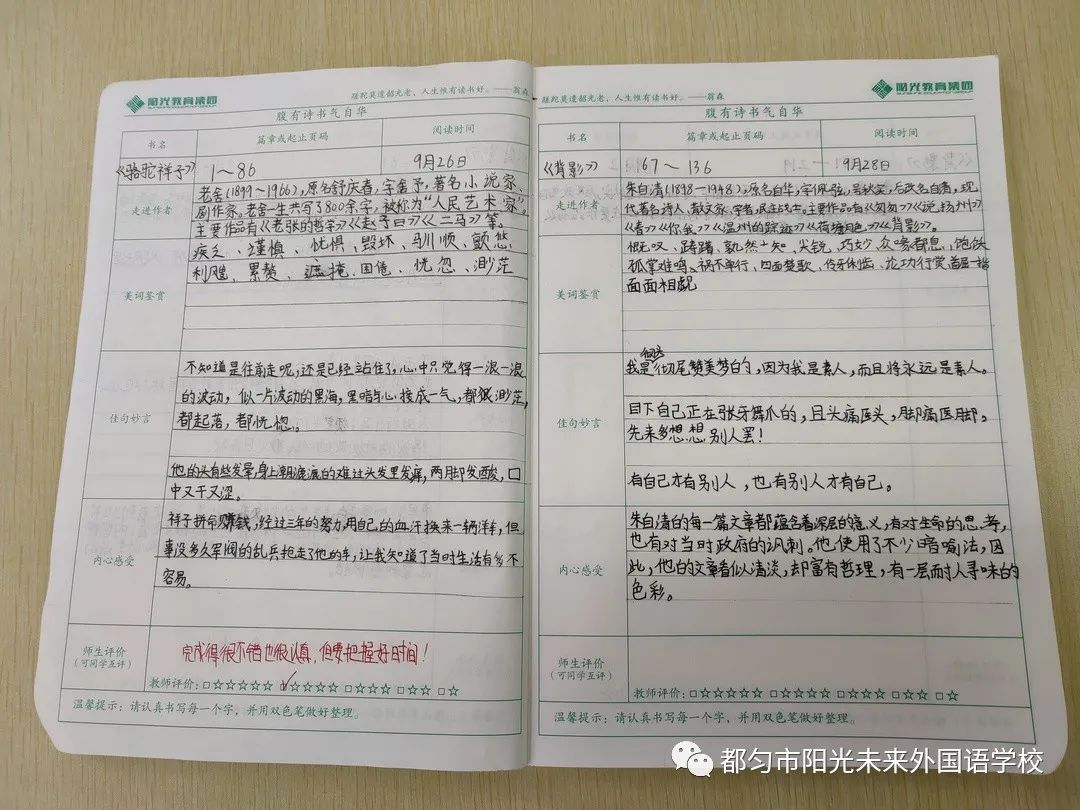 阳光教育集团
蹉跎莫遣韶光老，人生惟有读书好。——翁森
腹有诗书气自华
书名
篇章或起止页码
阅读时间
《骆驼祥子》
1～86
9月26日
走进作者
老舍(1899～1966)，原名舒庆春，字舍予，著名小说家、
剧作家。老舍一生共写了800余字，被称为“人民艺术家”。
主要作品有《老张的哲学》《赵子曰》《二马》等。
美词鉴赏
疲乏、谨慎、忧惧、毁坏、驯顺、颤悠、
利飕、累赘、遮掩、困倦、恍忽、渺茫
佳句妙言
不知道是往前走呢，还是已经站住了，心中只觉得一浪一浪
的波动，似一片波动的黑海，黑暗与心接成一气，都渺茫，
都起落，都恍惚。
他的头有些发晕，身上潮漉漉的难过头发里发痒，两脚发酸，口
中又干又涩。
内心感受
祥子拼命赚钱，经过三年的努力，用自己的血汗换来一辆洋车，但
事没多久军阀的乱兵抢走了他的车，让我知道了当时生活有多不
容易。
师生评价
(可同学互评)
完成得很不错也很认真，但要把握好时间！
教师评价：□☆☆☆☆☆ □☆☆☆☆ □☆☆☆ □☆☆ □☆
温馨提示：请认真书写每一个字，并用双色笔做好整理。
阳光教育集团
蹉跎莫遣韶光老，人生惟有读书好。——翁森
腹有诗书气自华
书名
篇章或起止页码
阅读时间
《背影》
67～136
9月28日
走进作者
朱自清(1898－1948)，原名自华，字佩弦，号秋实，后改名自清，现
代著名诗人、散文家、学者，民主战士。主要作品有《匆匆》《说扬州》
《春》《你我》《温州的踪迹》《荷塘月色》《背影》。
美词鉴赏
慨叹、踌躇、尖锐、巧妙
孤掌难鸣、祸不单行、四面楚歌、伶牙俐齿、论功行赏 首屈一指
面面相觑
佳句妙言
我是彻头彻尾赞美梦的，因为我是素人，而且将永远是素人。
目下自己正在张牙舞爪的，且头痛医头，脚痛医脚，
先来多想想别人罢！
有自己才有别人，也有别人才有自己。
内心感受
朱自清的每一篇文章都蕴含着深层的意义，有对生命的思考，
也有对当时政府的讽刺。他使用了不少暗喻法，因
此，他的文章看似清淡，却富有哲理，有一层耐人寻味的
色彩。
师生评价
(可同学互评)
教师评价：□☆☆☆☆☆ □☆☆☆☆ □☆☆☆ □☆☆ □☆
温馨提示：请认真书写每一个字，并用双色笔做好整理。
都匀市阳光未来外国语学校